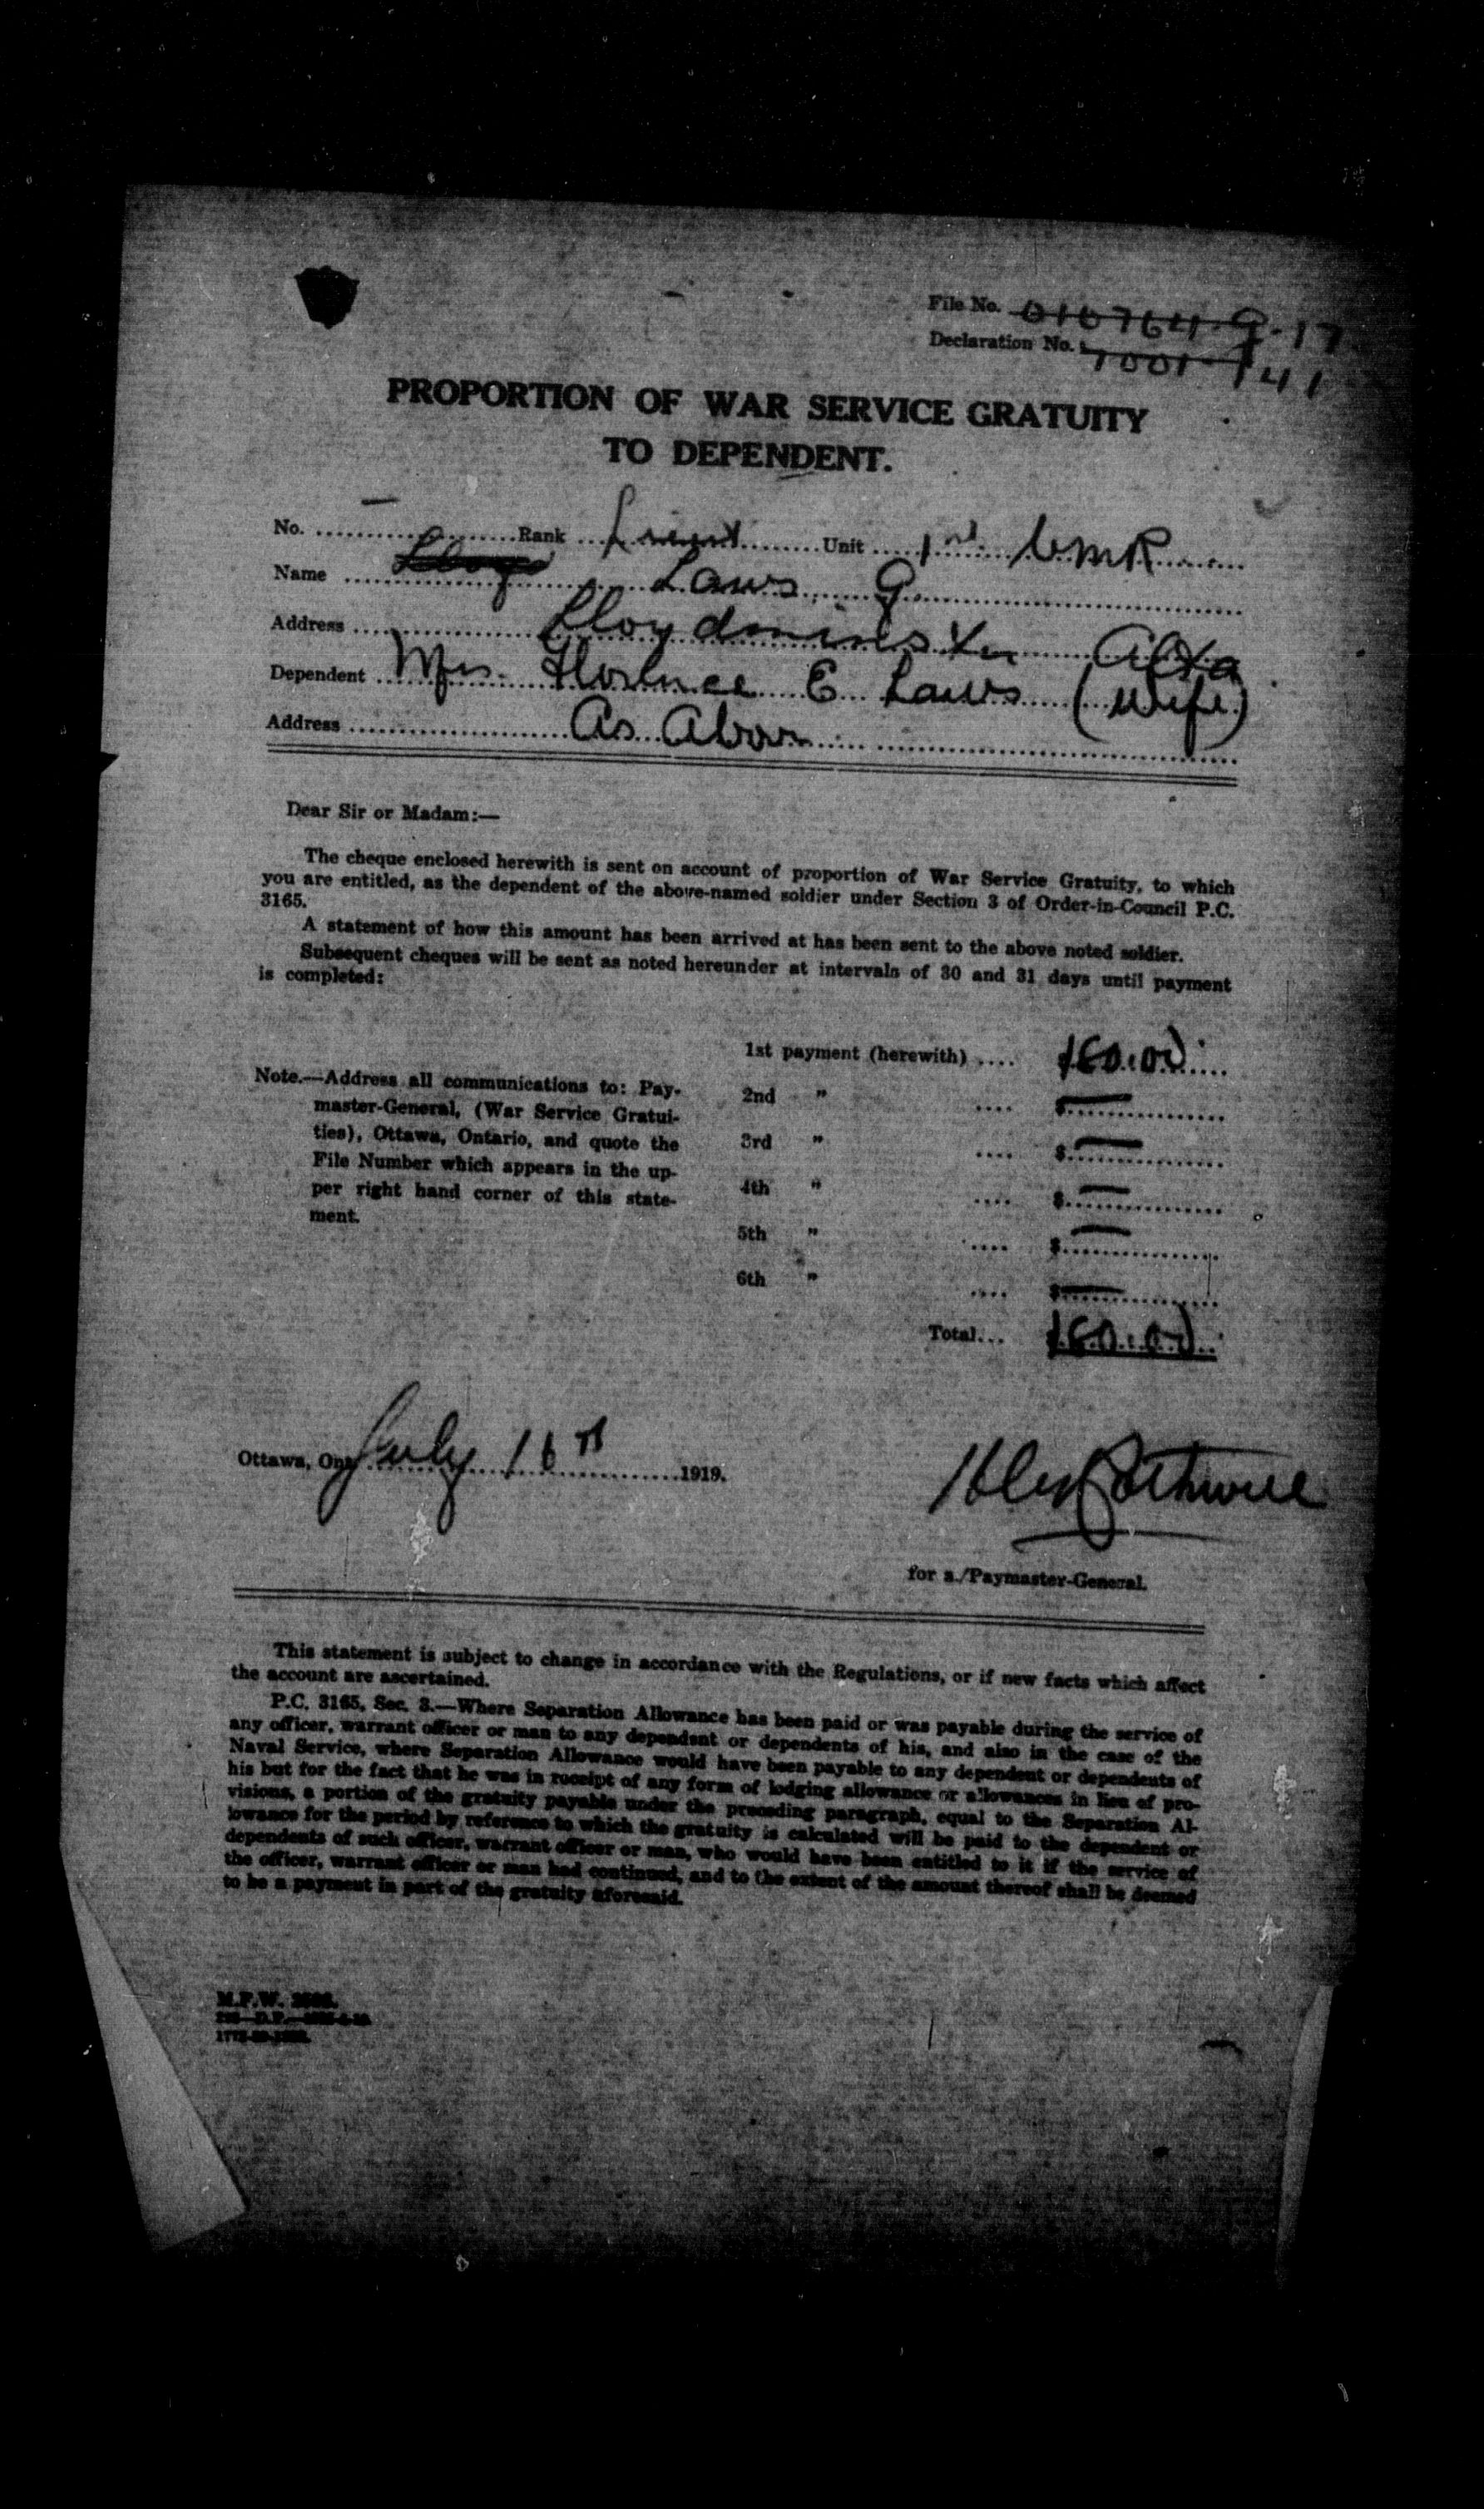 File No. 016764-G-17
Declaration No. 7001-141
PROPORTION OF WAR SERVICE GRATUITY
TO DEPENDENT.
No. — Rank Lieut Unit 1st CMR
Name Laws, G.
Address Lloydminster Alta
Dependent Mrs. Florence E Laws (Wife)
Address As Above
Dear Sir or Madam:—
The cheque enclosed herewith is sent on account of proportion of War Service Gratuity, to which
you are entitled, as the dependent of the above-named soldier under Section 3 of Order-in-Council P.C.
3165.
A statement of how this amount has been arrived at has been sent to the above noted soldier.
Subsequent cheques will be sent as noted hereunder at intervals of 30 and 31 days until payment
is completed:
Note.—Address all communications to: Pay-
master-General, (War Service Gratui-
ties), Ottawa, Ontario, and quote the
File Number which appears in the up-
per right hand corner of this state-
ment.
1st payment (herewith) ....
2nd " .... $ —
3rd " .... $ —
4th " .... $ —
5th " .... $ —
6th " .... $ —
Total...
Ottawa, Ont. July 16th 1919.
for a./Paymaster-General.
This statement is subject to change in accordance with the Regulations, or if new facts which affect
the account are ascertained.
P.C. 3165, Sec. 3.—Where Separation Allowance has been paid or was payable during the service of
any officer, warrant officer or man to any dependent or dependents of his, and also in the case of the
Naval Service, where Separation Allowance would have been payable to any dependent or dependents of
his but for the fact that he was in receipt of any form of lodging allowance or allowances in lieu of pro-
visions, a portion of the gratuity payable under the preceding paragraph, equal to the Separation Al-
lowance for the period by reference to which the gratuity is calculated will be paid to the dependent or
dependents of such officer, warrant officer or man, who would have been entitled to it if the service of
the officer, warrant officer or man had continued, and to the extent of the amount thereof shall be deemed
to be a payment in part of the gratuity aforesaid.
M.F.W.